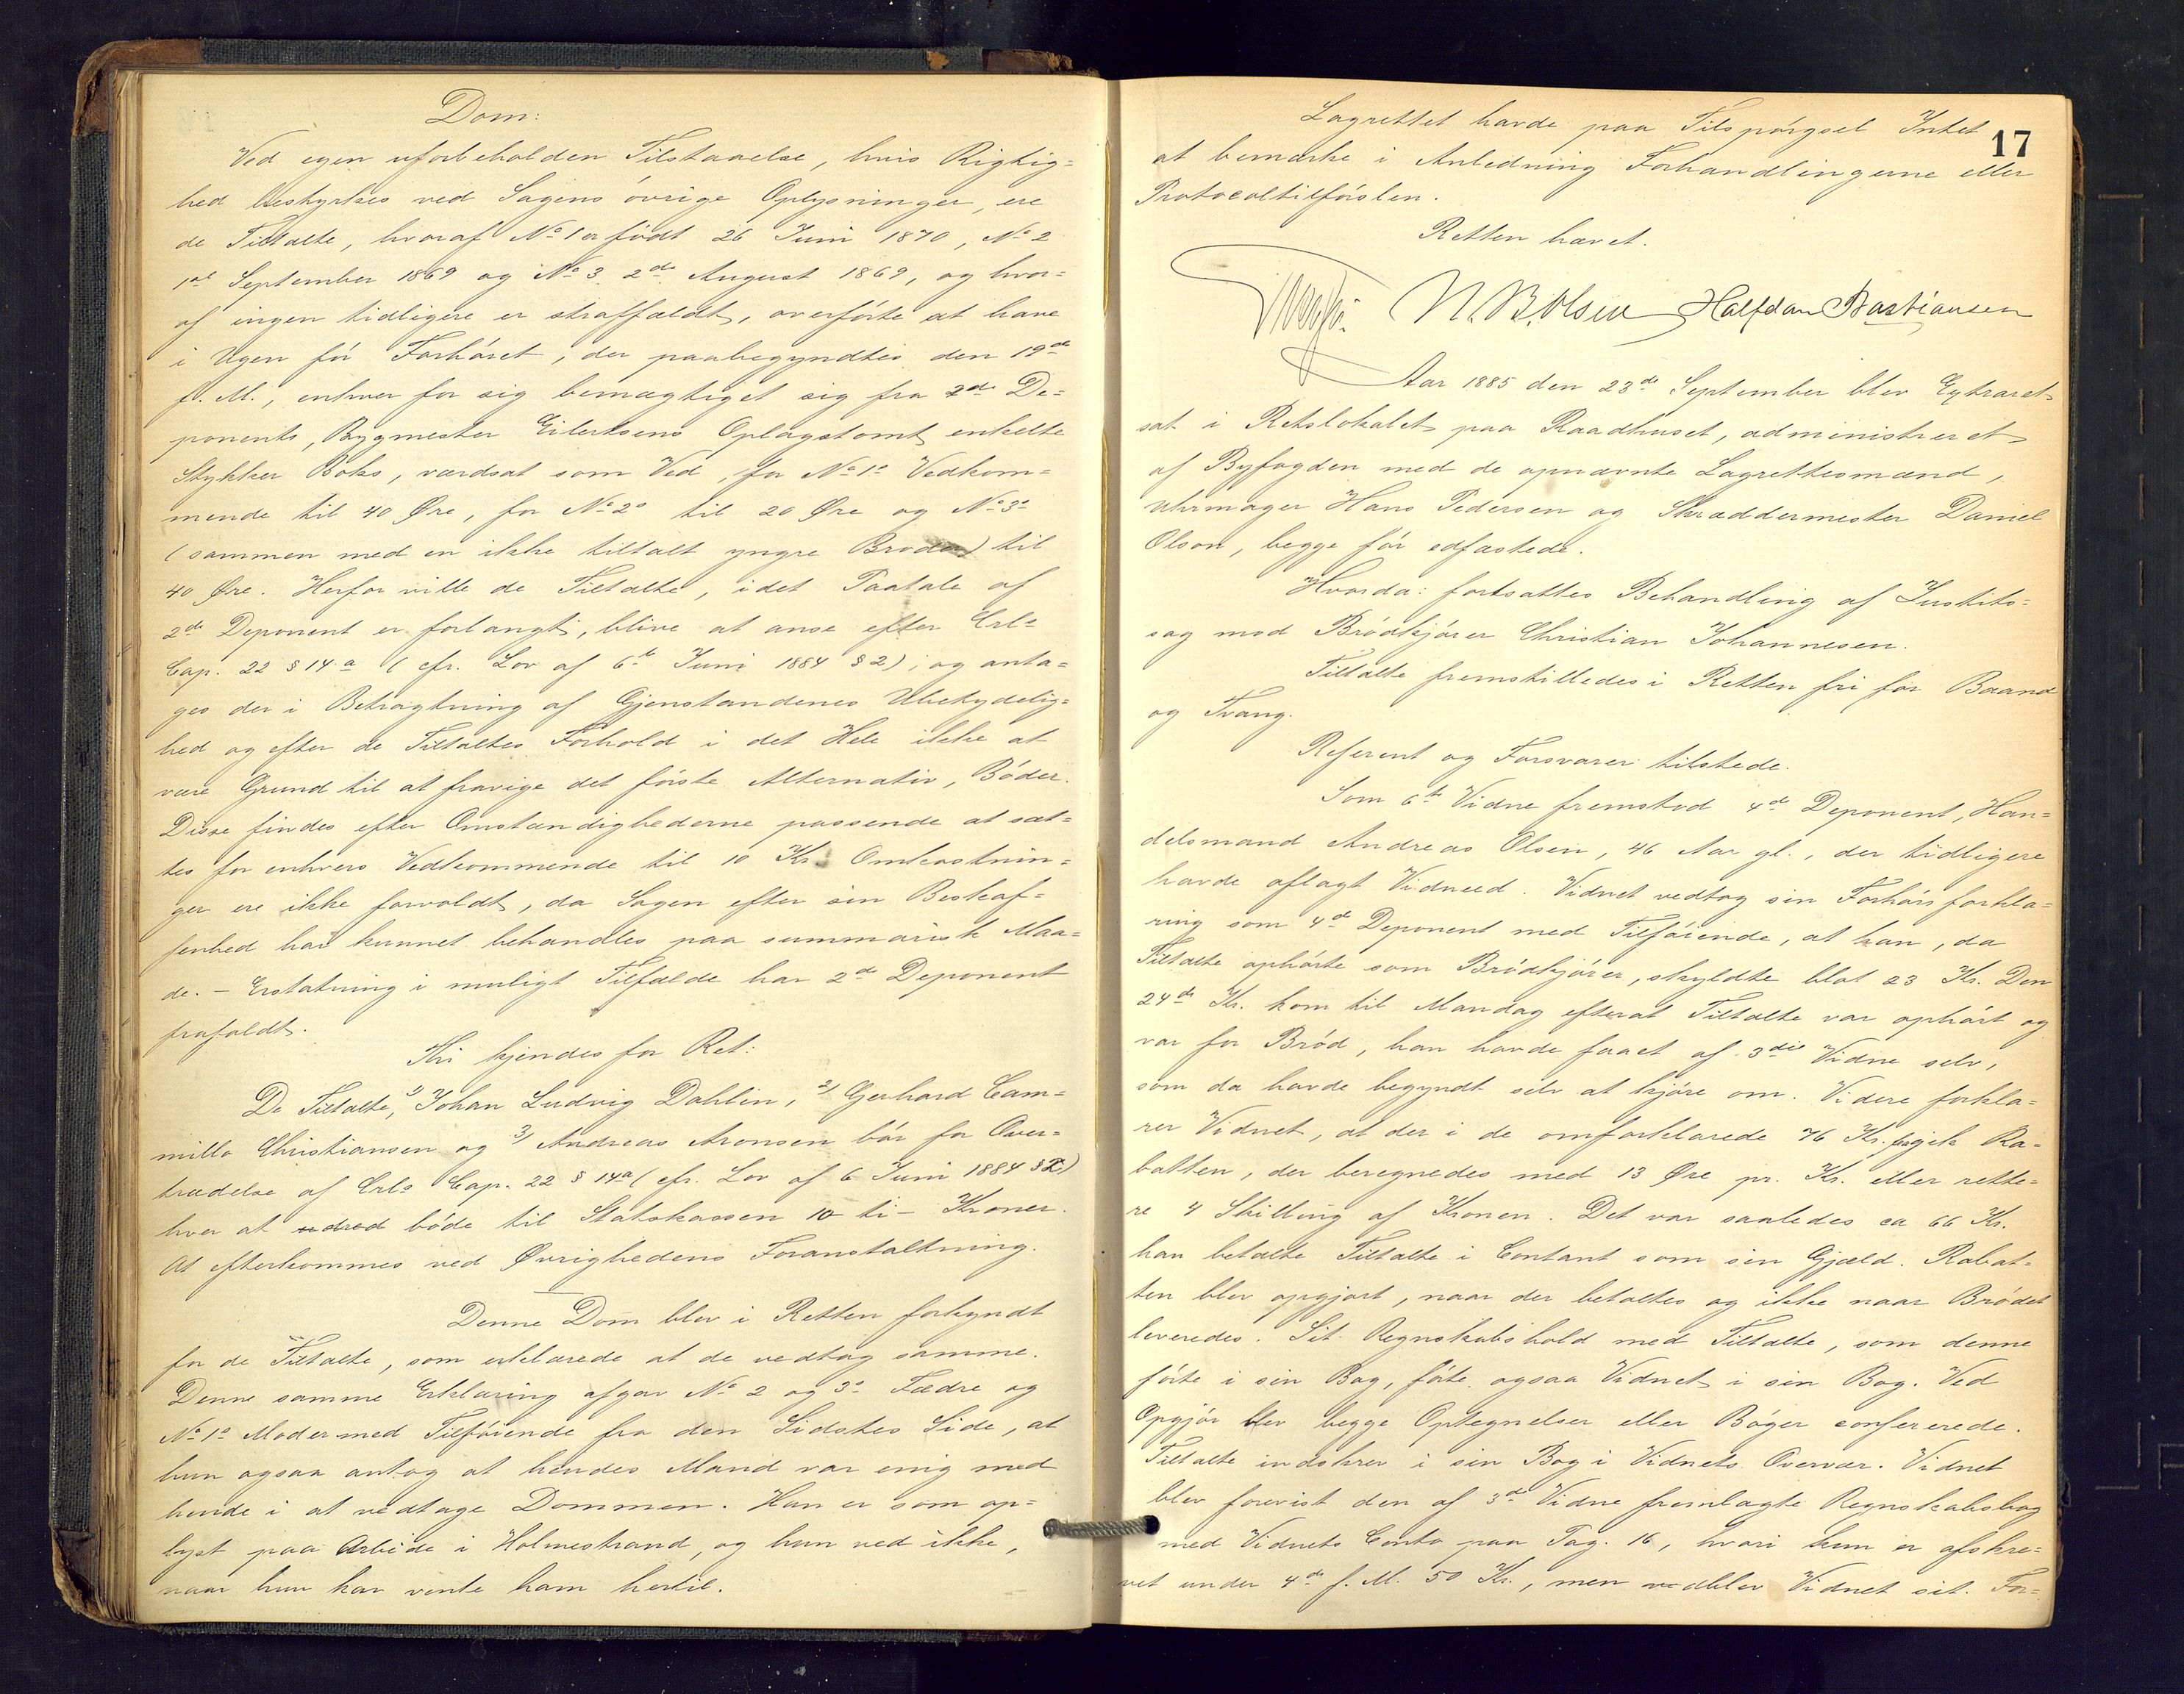 Dom:
Ved egen uforbeholden Tilstaaelse, hvis Rigtig=
hed bestyrkes ved Sagens øvrige Oplysninger, ere
de Tiltalte, hvoraf No 1 er født 26 Juni 1870, No 2
1ste September 1869 og No 3 2den August 1869, og hvor=
af ingen tidligere er straffældt, overførte at have
i Ugen før Forhøret, der paabegyndtes den 19de
f. M., enhver for sig bemægtiget sig fra 2de De=
ponents, Bygmester Eilertsens Oplagstomt enkelte
Stykker Boks, værdsat som Ved, for No 1s Vedkom=
mende til 40 Øre, for No 2s til 20 Øre og No 3s
(sammen med en ikke tiltalt yngre Broder) til
40 Øre. Herfor ville de Tiltalte, idet Paatale af
2de Deponent er forlangt, blive at anse efter Crls
Cap. 22 § 14 a (cfr. Lov af 6te Juni 1884 § 2); og anta=
ges der i Betragtning af Gjenstandenes Ubetydelig=
hed og efter de Tiltaltes Forhold i det Hele ikke at
være Grund til at fravige det første Alternativ, Bøder.
Disse findes efter Omstændighederne passende at sæt=
tes for enhvers Vedkommende til 10 Kr. Omkostnin=
ger ere ikke forvoldt, da Sagen efter sin Beskaf=
fenhed har kunnet behandles paa summarisk Maa=
de. – Erstatning i muligt Tilfælde har 2de Deponent
frafaldt.
Thi kjendes for Ret:
De Tiltalte, 1) Johan Ludvig Dahlin, 2) Gerhard Cam=
milla Christiansen og 3) Andreas Aronsen bør for Over=
trædelse af Crls Cap. 22 § 14 a (cfr. Lov af 6 Juni 1884 § 2)
hver at bøde til Statskassen 10 ti – Kroner.
At efterkommes ved Øvrighedens Foranstaltning.
Denne Dom blev i Retten forkyndt
for de Tiltalte, som erklærede at de vedtog samme.
Denne samme Erklæring afgav No 2 og 3s Fædre og
No 1s Moder med Tilføiende fra den Sidstes Side, at
hun ogsaa antog at hendes Mand var enig med
hende i at vedtage Dommen. Han er som op=
lyst paa Arbeide i Holmestrand, og hun ved ikke,
naar hun kan vente ham hertil.
17
Lagrettet havde paa Tilspørgsel Intet
at bemærke i Anledning Forhandlingerne eller
Protocoltilførslen.
Retten hævet.
N. B. Olsen Halfdan Bastiansen
Aar 1885 den 23de September blev Extraret
sat i Retslokalet paa Raadhuset, administreret
af Byfogden med de opnævnte Lagrettesmænd,
Uhrmager Hans Pedersen og Skræddermester Daniel
Olson, begge før edfæstede.
Hvorda: fortsattes Behandling af Justits=
sag mod Brødkjører Christian Johannesen.
Tiltalte fremstilledes i Retten fri for Baand
og Tvang.
Referent og Forsvarer tilstede.
Som 6te Vidne fremstod 4de Deponent, Han=
delsmand Andreas Olsen, 46 Aar gl., der tidligere
havde aflagt Vidneed. Vidnet vedtog sin Forhørsforkla=
ring som 4de Deponent med Tilføiende, at han, da
Tiltalte ophørte som Brødkjører, skyldte blot 23 Kr. Den
24de Kr. kom til Mandag efterat Tiltalte var ophørt og
var for Brød, han havde faaet af 3die Vidne selv,
som da havde begyndt selv at kjøre om. Videre forkla=
rer Vidnet, at der i de omforklarede 76 Kr. fragik Ra=
batten, der beregnedes med 13 Øre pr. Kr. eller rette=
re 4 Skilling af Kronen. Det var saaledes ca 66 Kr.
han betalte Tiltalte i Contant som sin Gjæld. Rabat=
ten blev opgjort, naar der betaltes og ikke naar Brødet
leveredes. Sit Regnskabshold med Tiltalte, som denne
førte i sin Bog, førte ogsaa Vidnet i sin Bog. Ved
Opgjør blev begge Optegnelser eller Bøger confererede.
Tiltalte indskrev i sin Bog i Vidnets Overvær. Vidnet
blev forevist den af 3de Vidne fremlagte Regnskabsbog
med Vidnets Conto paa Pag. 16, hvori kun er afskre=
vet under 4de f. M. 50 Kr., men vedblev Vidnet sit For=